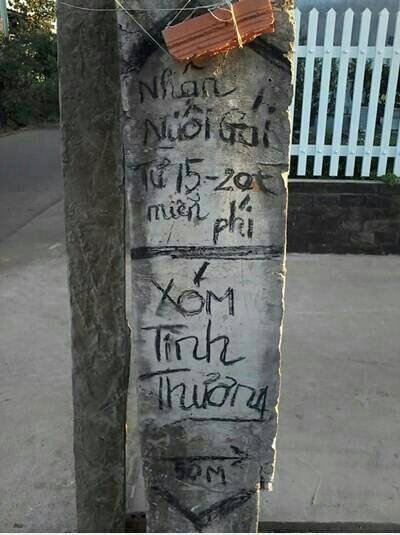 Nhận
Nuôi Gái
Từ 15-20t
miễn phí
XÓM
Tình
Thương
50M